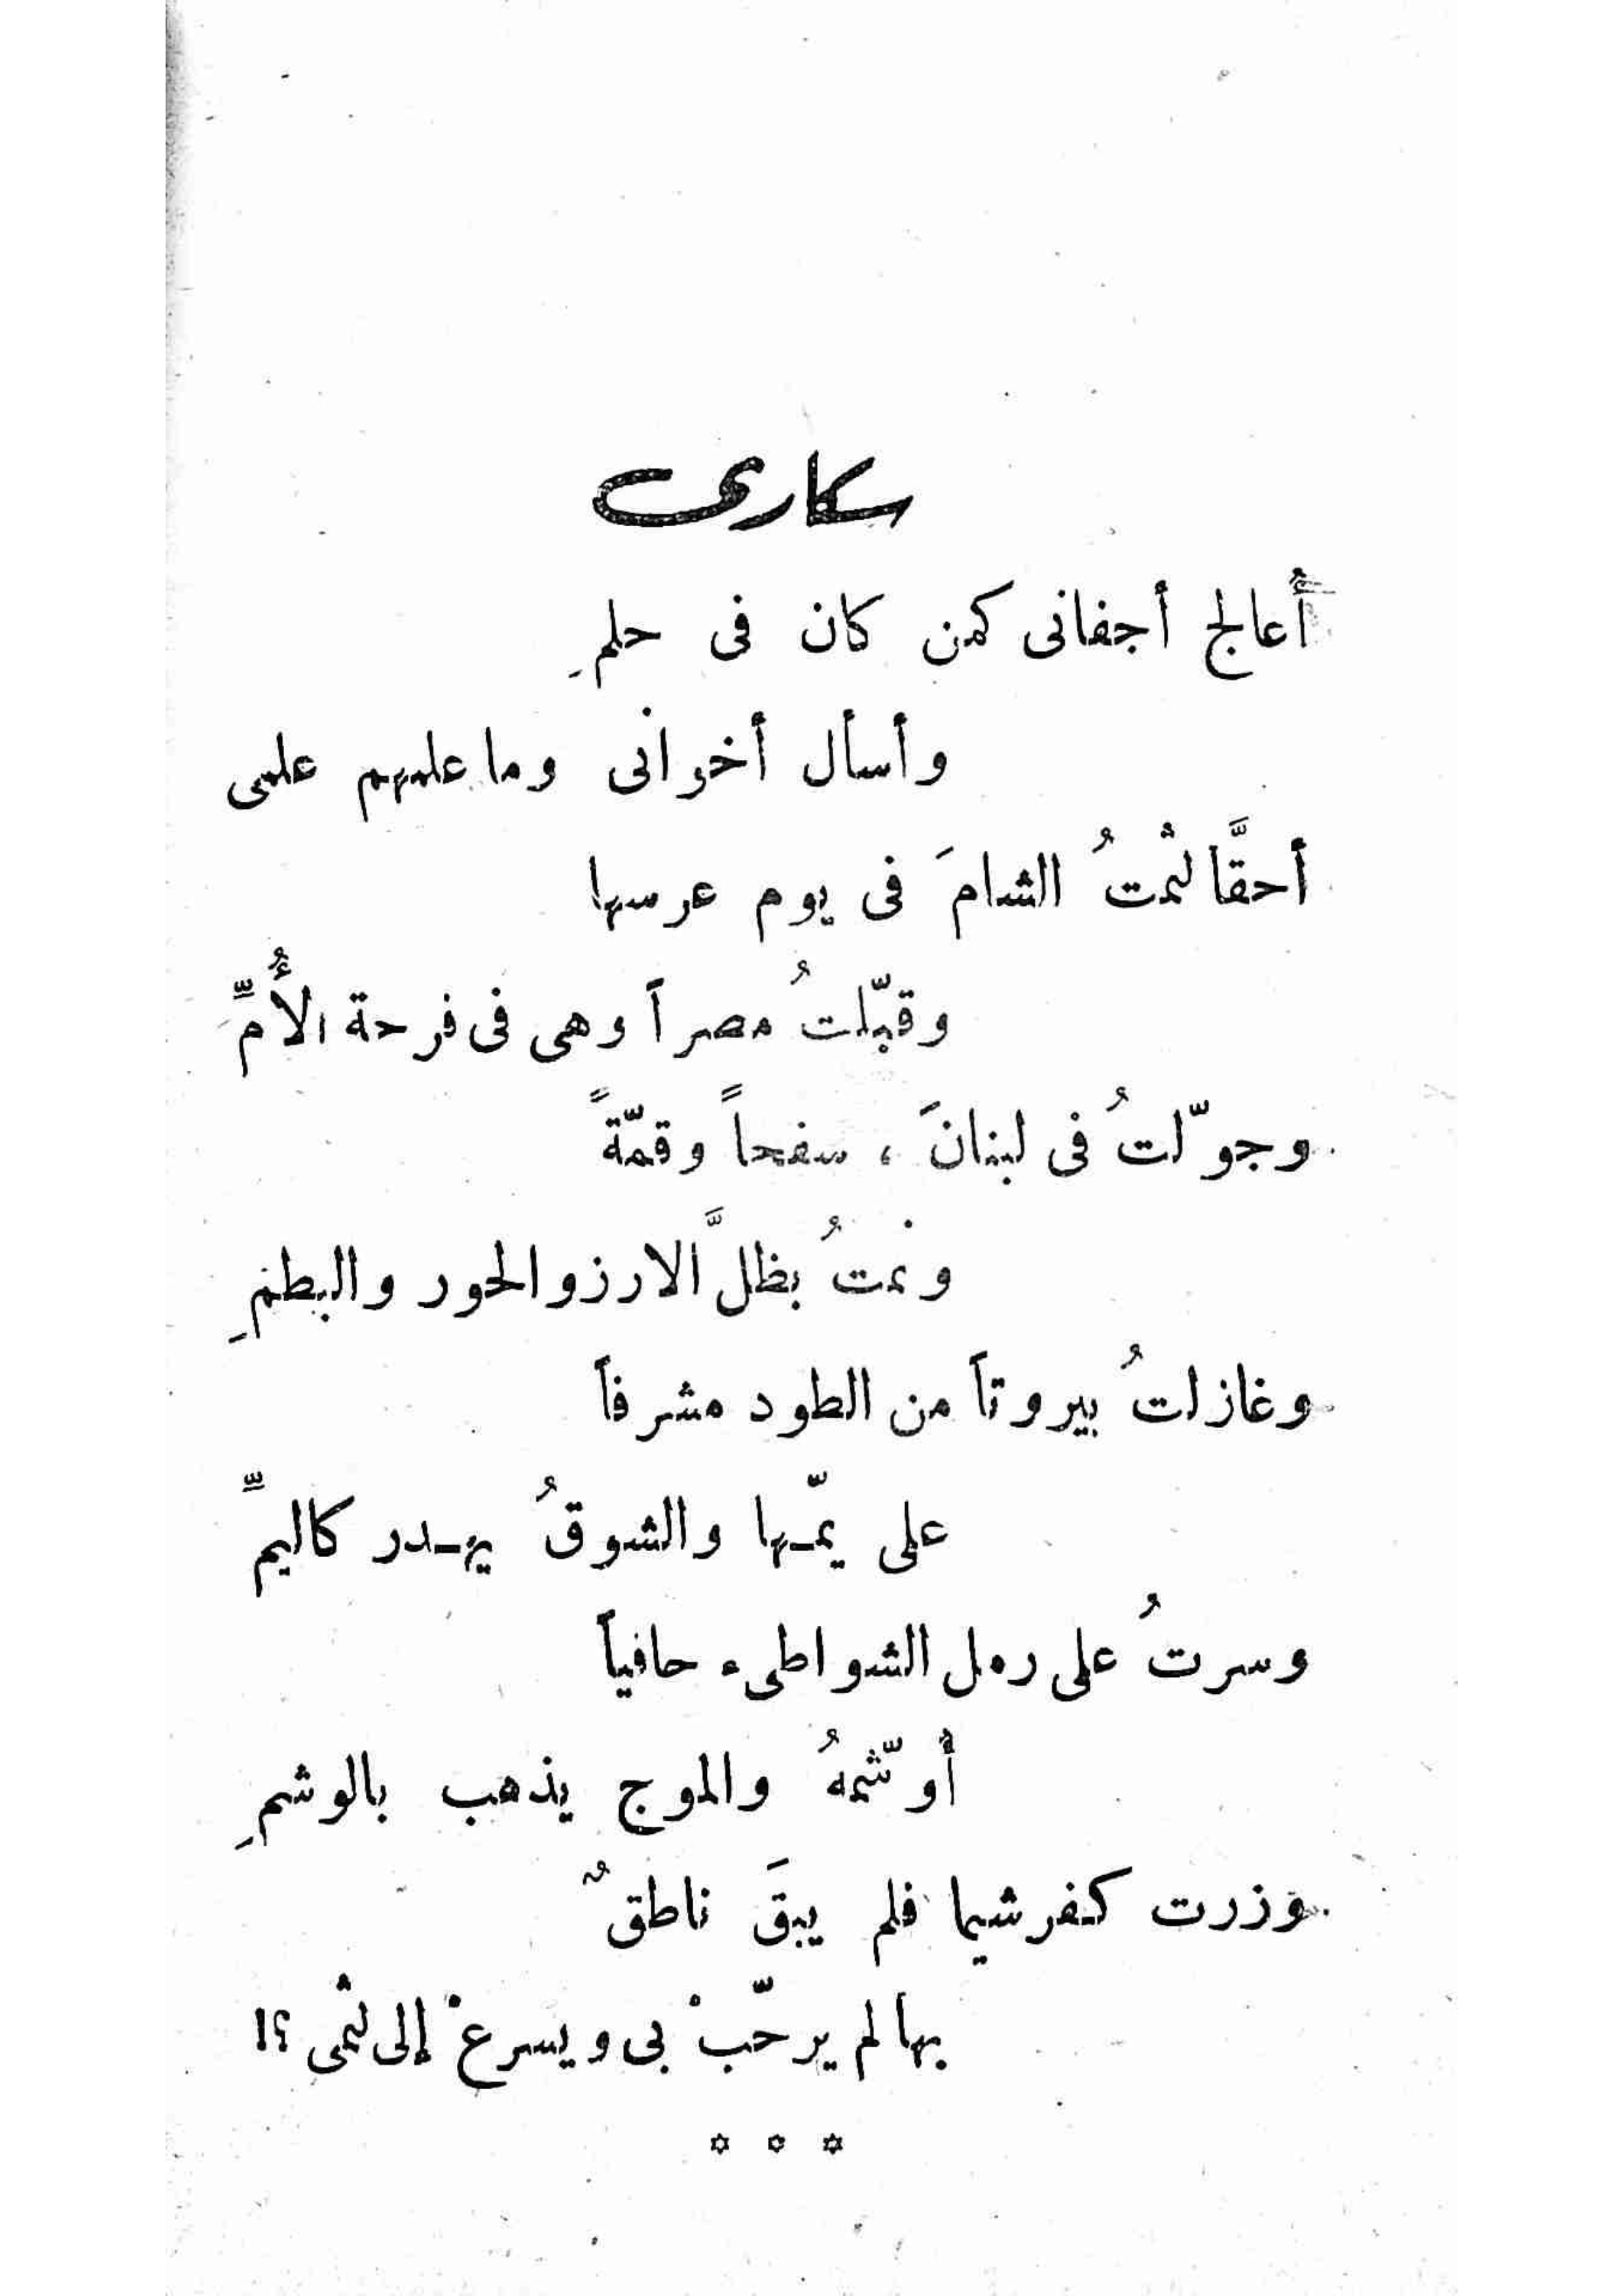 سكارى
أُعالج أجفانى كمن كان فى حلمِ
وأسأل أخوانى وما علمهم علمى
أحقَّا لثمتُ الشامَ فى يوم عرسها
وقبّلتُ مصراً وهى فى فرحة الأُمِّ
وجوّلتُ فى لبنانَ ، سفحاً وقمّةً
ونمتُ بظلَّ الارز والحور والبطمِ
وغازلتُ بيروتاً من الطود مشرفاً
على يمّـها والشوقُ يهـدر كاليمِّ
وسرتُ على رمل الشواطىء حافياً
أُوشّمهُ والموج يذهب بالوشمِ
وزرت كفرشيما فلم يبقَ ناطقٌ
بها لم يرحّبْ بى ويسرعْ إلى لثمى ؟!
* * *